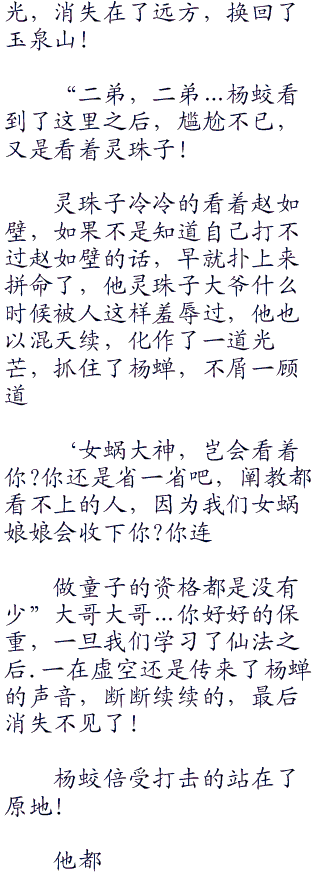 光，消失在了远方，换回了
玉泉山！
“二弟，二弟…杨蛟看
到了这里之后，尴尬不已，
又是看着灵珠子！
灵珠子冷冷的看着赵如
壁，如果不是知道自己打不
过赵如壁的话，早就扑上来
拼命了，他灵珠子大爷什么
时候被人这样羞辱过，他也
以混天续，化作了一道光
芒，抓住了杨蝉，不屑一顾
道
‘女蜗大神，岂会看着
你?你还是省一省吧，阐教都
看不上的人，因为我们女蜗
娘娘会收下你?你连
做童子的资格都是没有
少”大哥大哥…你好好的保
重，一旦我们学习了仙法之
后.一在虚空还是传来了杨蝉
的声音，断断续续的，最后
消失不见了！
杨蛟倍受打击的站在了
原地！
他都